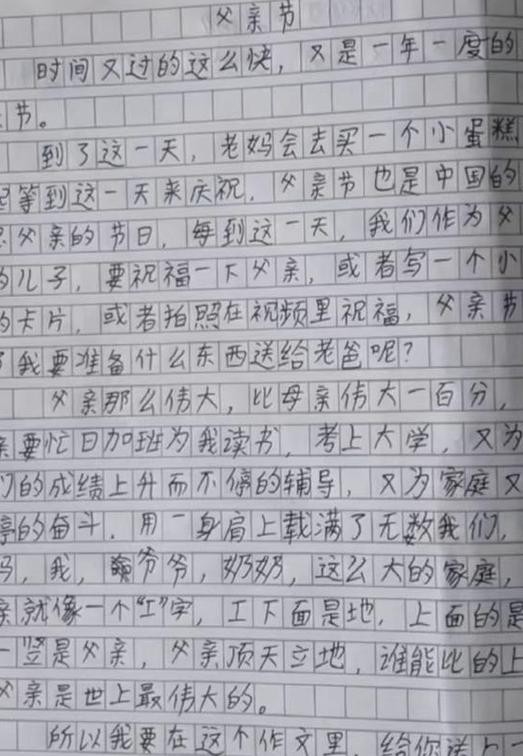 父亲节
时间又过的这么快，又是一年一度的
节。
到了这一天，老妈会去买一个小蛋糕
等到这一天来庆祝，父亲节也是中国的
父亲的节日，每到这一天，我们作为父
的儿子，要祝福一下父亲，或者写一个小
的卡片，或者拍照在视频里祝福，父亲节
了我要准备什么东西送给老爸呢？
父亲那么伟大，比母亲伟大一百分，
亲要忙日加班为我读书，考上大学，又为
们的成绩上升而不停的辅导，又为家庭又
停的奋斗，用一身肩上载满了无数我们，
妈，我，爷爷，奶奶，这么大的家庭，
亲就像一个“工”字，工下面是地，上面的是
一竖是父亲，父亲顶天立地，谁能比的上
父亲是世上最伟大的。
所以我要在这个作文里，给你送上